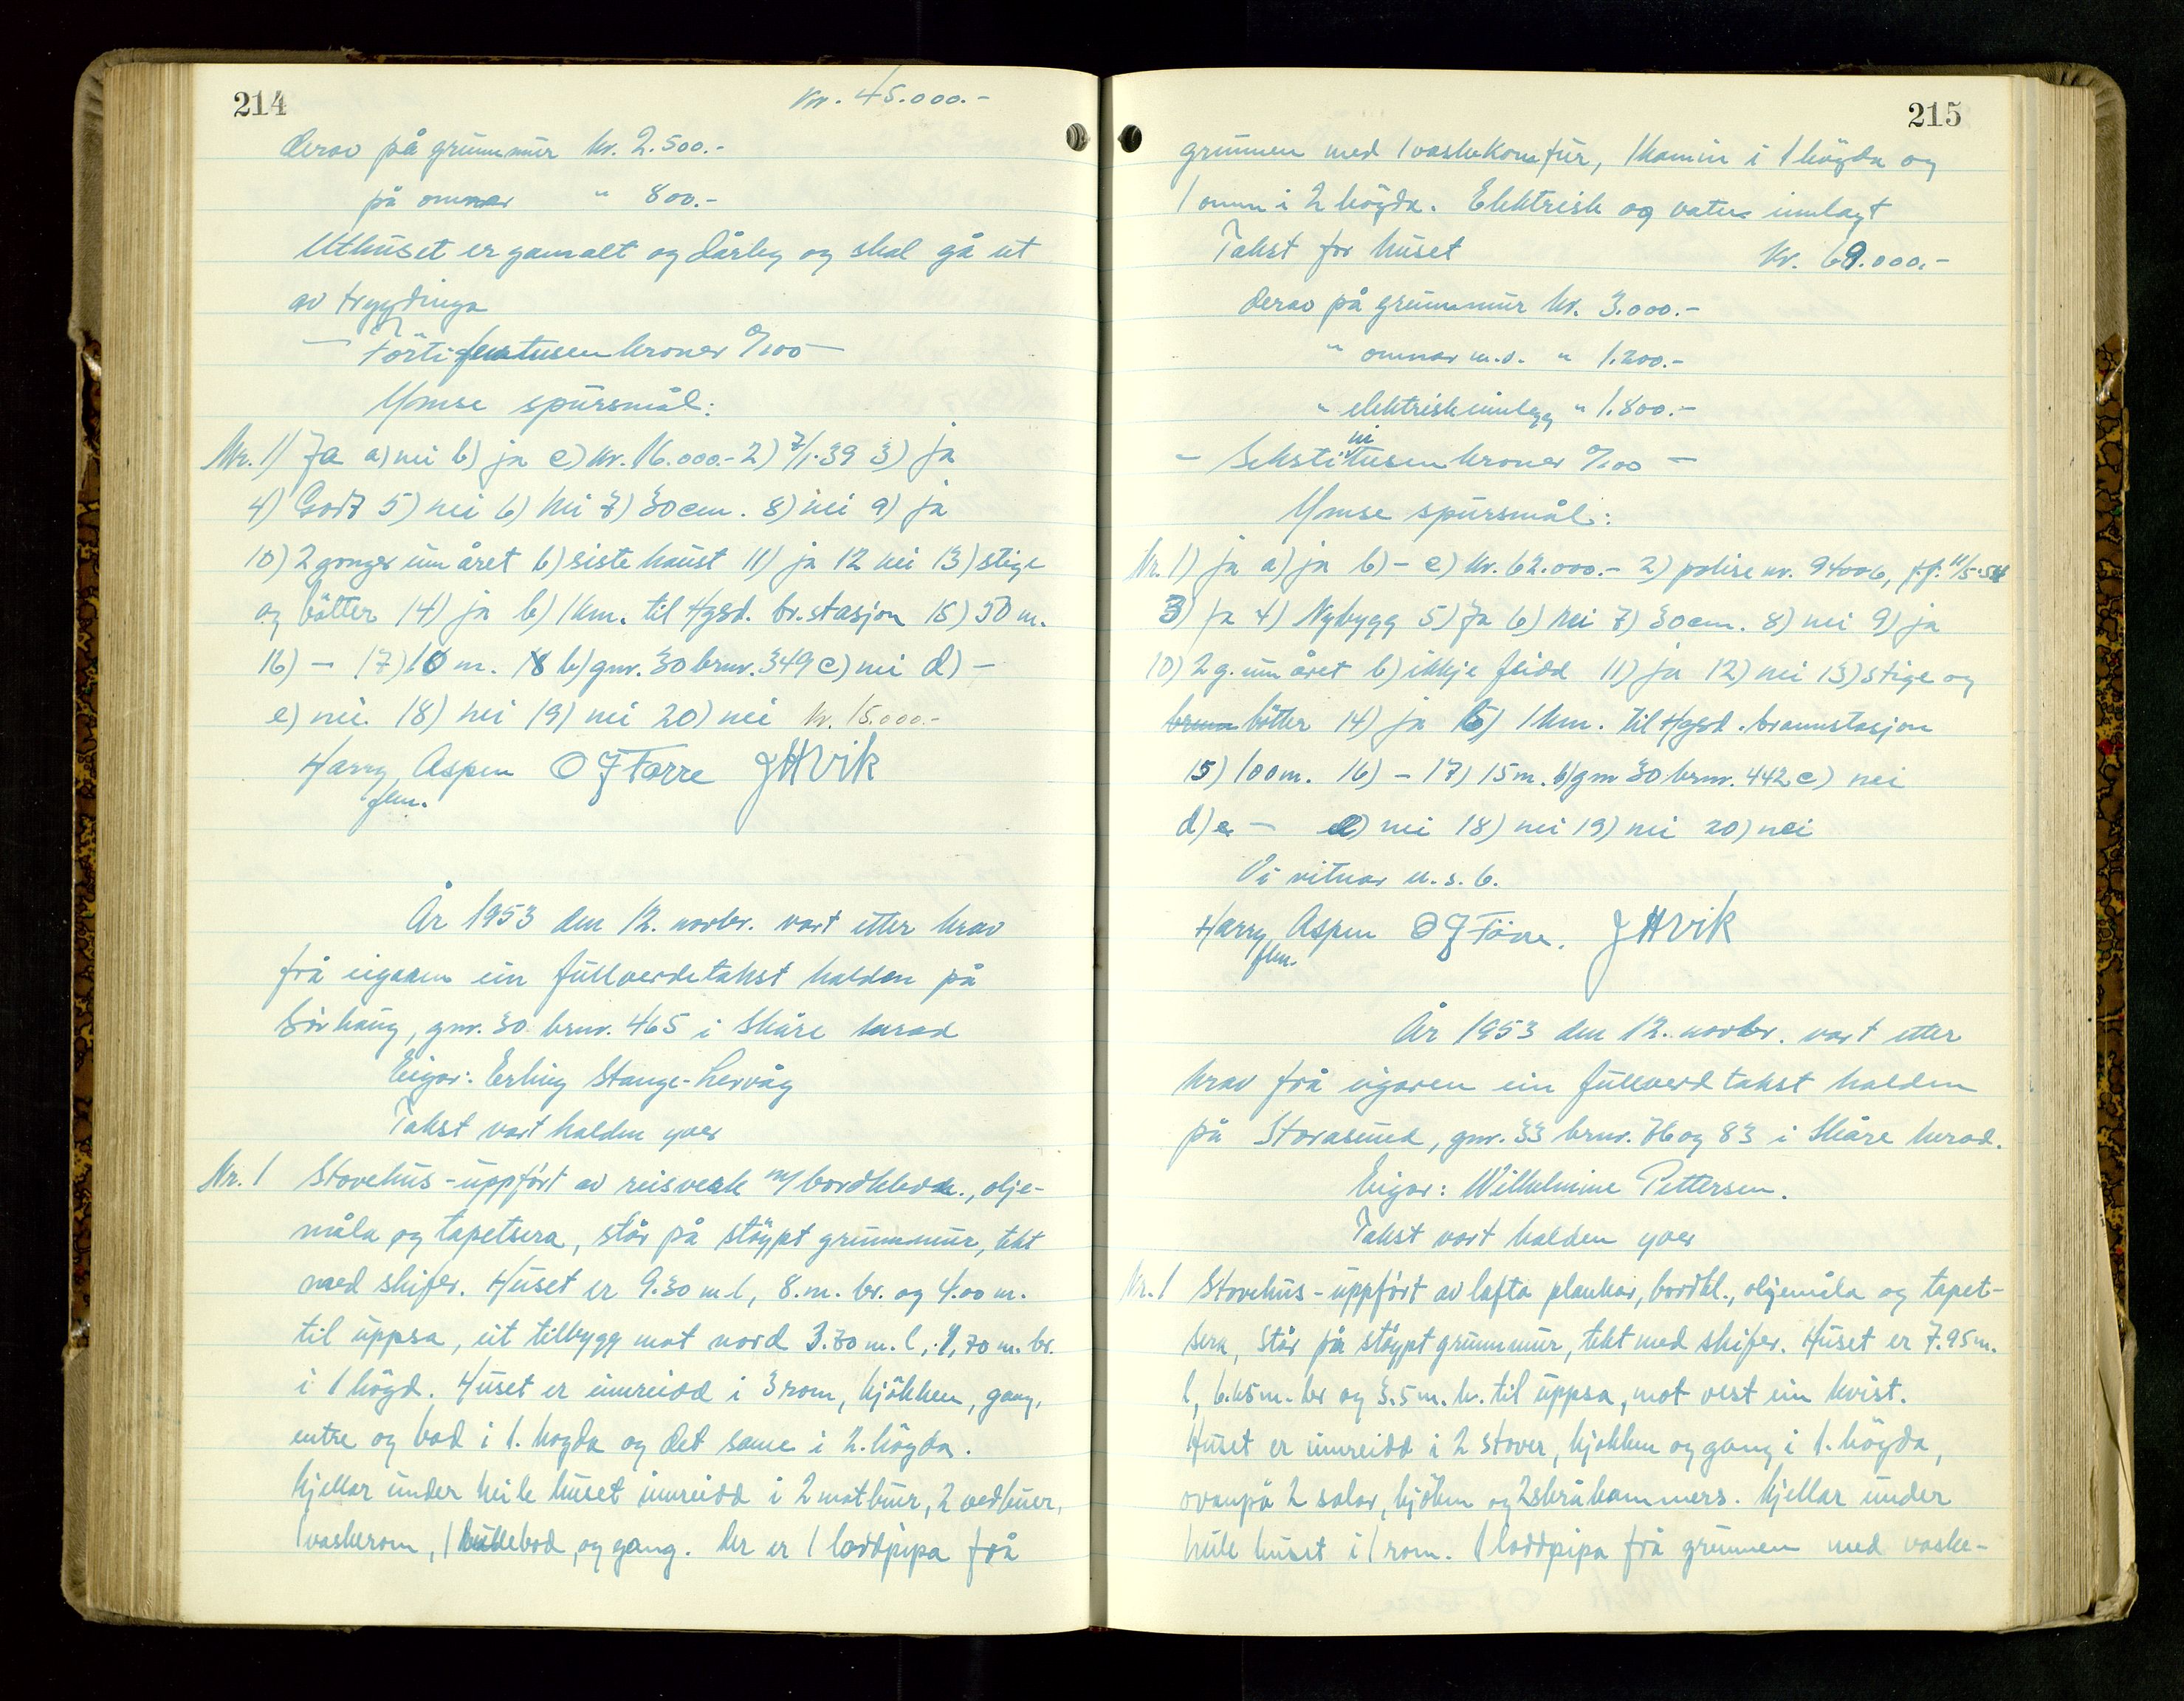 214
kr. 45.000.-
derav på grunnmur kr. 2.500.-
på omnar " 800.-
Uthuset er gamalt og dårleg og skal gå ut
av trygdinga
- Förtifemtusen kroner 0/100 -
Ymse spursmål:
Nr. 1) Ja a) nei b) ja c) kr. 16.000.- 2) 7/1.39 3) ja
4) Godt 5) nei 6) Nei 7) 30 cm. 8) nei 9) ja
10) 2 gonger um året b) siste haust 11) ja 12 nei 13) stige
og bötter 14) ja b) 1 km. til Hgsd. br.stasjon 15) 50 m.
16) - 17) 10 m. b) gnr. 30 brnr. 349 c) nei d) -
e) nei. 18) nei 19) nei 20) nei kr. 15.000.-
Harry Aspen O J Førre J H Vik
flm.
År 1953 den 12. novbr. vart etter krav
frå eigaren ein fullverdetakst halden på
Sörhaug, gnr. 30 brnr. 465 i Skåre herad
Eigar: Erling Stange-Lervåg
Takst vart halden yver
Nr. 1 Stovehus - uppfört av reisverk m/ bordkledn., olje-
måla og tapetsera, står på stöypt grunnmur, tekt
med skifer. Huset er 9.30 m l, 8. m. br. og 4.00 m.
til uppsa, eit tilbygg mot nord 3.70 m. l, 1,70 m. br.
i 1 högd. Huset er innreidd i 3 rom, kjökken, gang,
entre og bad i 1. högda og det same i 2. högda.
Kjellar under heile huset innreidd i 2 matbuer, 2 vedbuer,
1 vaskerom, 1 bod, og gang. Der er 1 loddpipa frå
215
grunnen med 1 vaskekomfur, 1 kamin i 1 högda og
1 omn i 2 högda. Elektrisk og vatn innlagt
Takst for huset kr. 69.000.-
derav på grunnmur kr. 3.000.-
" omnar m.v. " 1.200.-
" elektrisk innlegg " 1.800.-
ni
- Sekstitusen kroner 0/100 -
Ymse spursmål:
Nr. 1) ja a) ja b) - c) kr. 62.000.- 2) polise nr. 94006, f.f. 11/5.54
3) ja 4) Nybygg 5) Ja 6) Nei 7) 30 cm. 8) nei 9) ja
10) 2 g. um året b) ikkje feidd 11) ja 12) nei 13) stige og
bötter 14) ja b) 1 km. til Hgsd. brannstasjon
15) 100 m. 16) - 17) 15 m. b) gnr 30 brnr. 442 c) nei
d) - e) nei 18) nei 19) nei 20) nei
Vi vitnar u. s. b.
Harry Aspen O J Förre. J H Vik
flm.
År 1953 den 12. novbr. vart etter
krav frå eigaren ein fullverdtakst halden
på Storasund, gnr. 33 brnr. 76 og 83 i Skåre herad.
Eigar: Wilhelmine Pettersen.
Takst vart halden yver
Nr. 1 Stovehus - uppfört av lafta plankar, bordkl., oljemåla og tapet-
sera, står på stöypt grunnmur, tekt med skifer. Huset er 7.95 m.
l, 6.65 m. br og 3.5 m. h. til uppsa, mot vest ein kvist.
Huset er innreidd i 2 stover, kjökken og gang i 1. högda,
ovanpå 2 salar, kjöken og 2 skråkammers. Kjellar under
heile huset i 1 rom. 1 loddpipa frå grunnen med vaske-